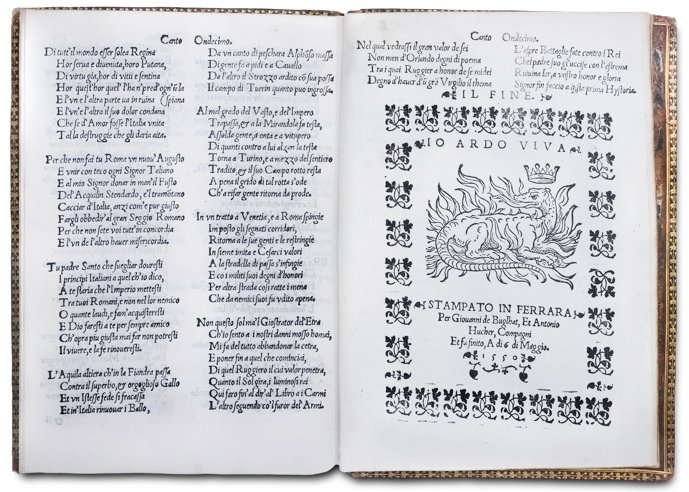 Canto Ondecimo.
Di tutt'il mondo esser solea Regina
Hor serua e diuenuta, horo Putana,
Di virtu gia, hor di vitii sentina
Hor quest' hor quel l'ha in pred' ogn'ũ la
E l'vn e l'altra parte ua in ruina (spiana
E l'vn e l'altra il suo dolor condana
Che se d'Amor fosse l'Italia vnita
Tal la destruggie che gli daria aita.
Per che non fai tu Roma vn nuou' Augusto
E vnir con teco ogni Signor Taliano
E al mio Signor doner in man'il Fusto
Del'Acquilin Stendardo, e l'tramotano
Cacciar d'Italia, anzi com'e pur giusto
Fargli obbedir'al gran Seggio Romano
Per che non sete voi tutt'in concordia
E l'vn de l'altro hauer misericordia.
Tu padre Santo che suegliar douresti
I principi Italiani a quel ch'io dico,
A te staria che l'Imperio mettesti
Tra tuoi Romani, e non nel lor nemico
O quante laudi, e fam'acquisteresti
E Dio faresti a te per sempre amico
Ch'opra piu giusta mai far non poteresti
Il viuere, e la fe rinoueresti.
L'Aquila altiera ch'in la Fiandra passa
Contra il superbo, et orgoglioso Gallo
Et vn Istesse fede si fracassa
Et in'Italia rinouar i Ballo,
Da vn canto di peschara Alphõso massa
Di gente fia a pidi e a Cauallo
Da l'altro il Strozzo ardito cõ sua possa
Il campo di Turin quanto puo ingrossa.
Al mel grado del Vasto, e de l'Impero
Trapassa, ey a la Mirandola fa testa,
Assolda gente, a onta e a vitupero
Di quanti contro a lui alzen la testa
Torna a Turino, e a mezzo del sentiero
Tradito, ey il suo Campo rotto resta
A pena il grido di tal rotta s'ode
Ch'a rifar gente ritorna da prode.
In vn tratto a Venetia, e a Roma spingie
Im posto gli segnati corridori,
Ritorna a le sue genti e le restringie
In sieme imita e Cesarei valori
A la stradella di passa s'infingie
E co i mitt suoi degni d'honori
Per altra strada così ratte i mena
Che da nemici suoi fu vdito apena.
Non questo sol ma'l Giostrator del'Etra
Ch'io sento a i nostri danni mosso homai,
Mi fa del tutto abbandonar la cetra,
E poner fin a quel che comincïai,
Di quel Ruggiero il cui valor penetra,
Quanto il Sol gira, i luminosi rai
Qui faro fin'al dir' al Libro a i Carmi
L'altro seguendo cõ l'furor del'Armi.
Canto Ondecimo.
Nel qual vedrassi il gran valor de sei
Non men d'Orlando degni di poema
Tra i quei Ruggier a honor de se midei
Degno d'hauer d'il grã Virgilio il thema
L'aspre Battaglie fate contro i Rei
Chel padre suo gl'uccise con l'estrema
Ruuina lor, a vostro honor e gloria
Signor fin faccio a q̃sta prima Hystoria.
IL FINE.
IO ARDO VIVA
STAMPATO IN FERRARA,
Per Giouanni de Buglhat, Et Antonio
Hucher, Compagni
Et fa finito, A di 6 di Maggio.
1550